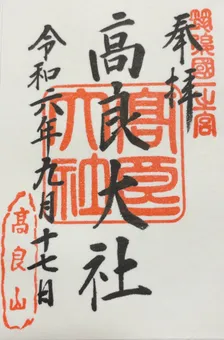 奉拝
筑後國一之宮
高良大社
髙良大社
令和六年九月十七日
高良山